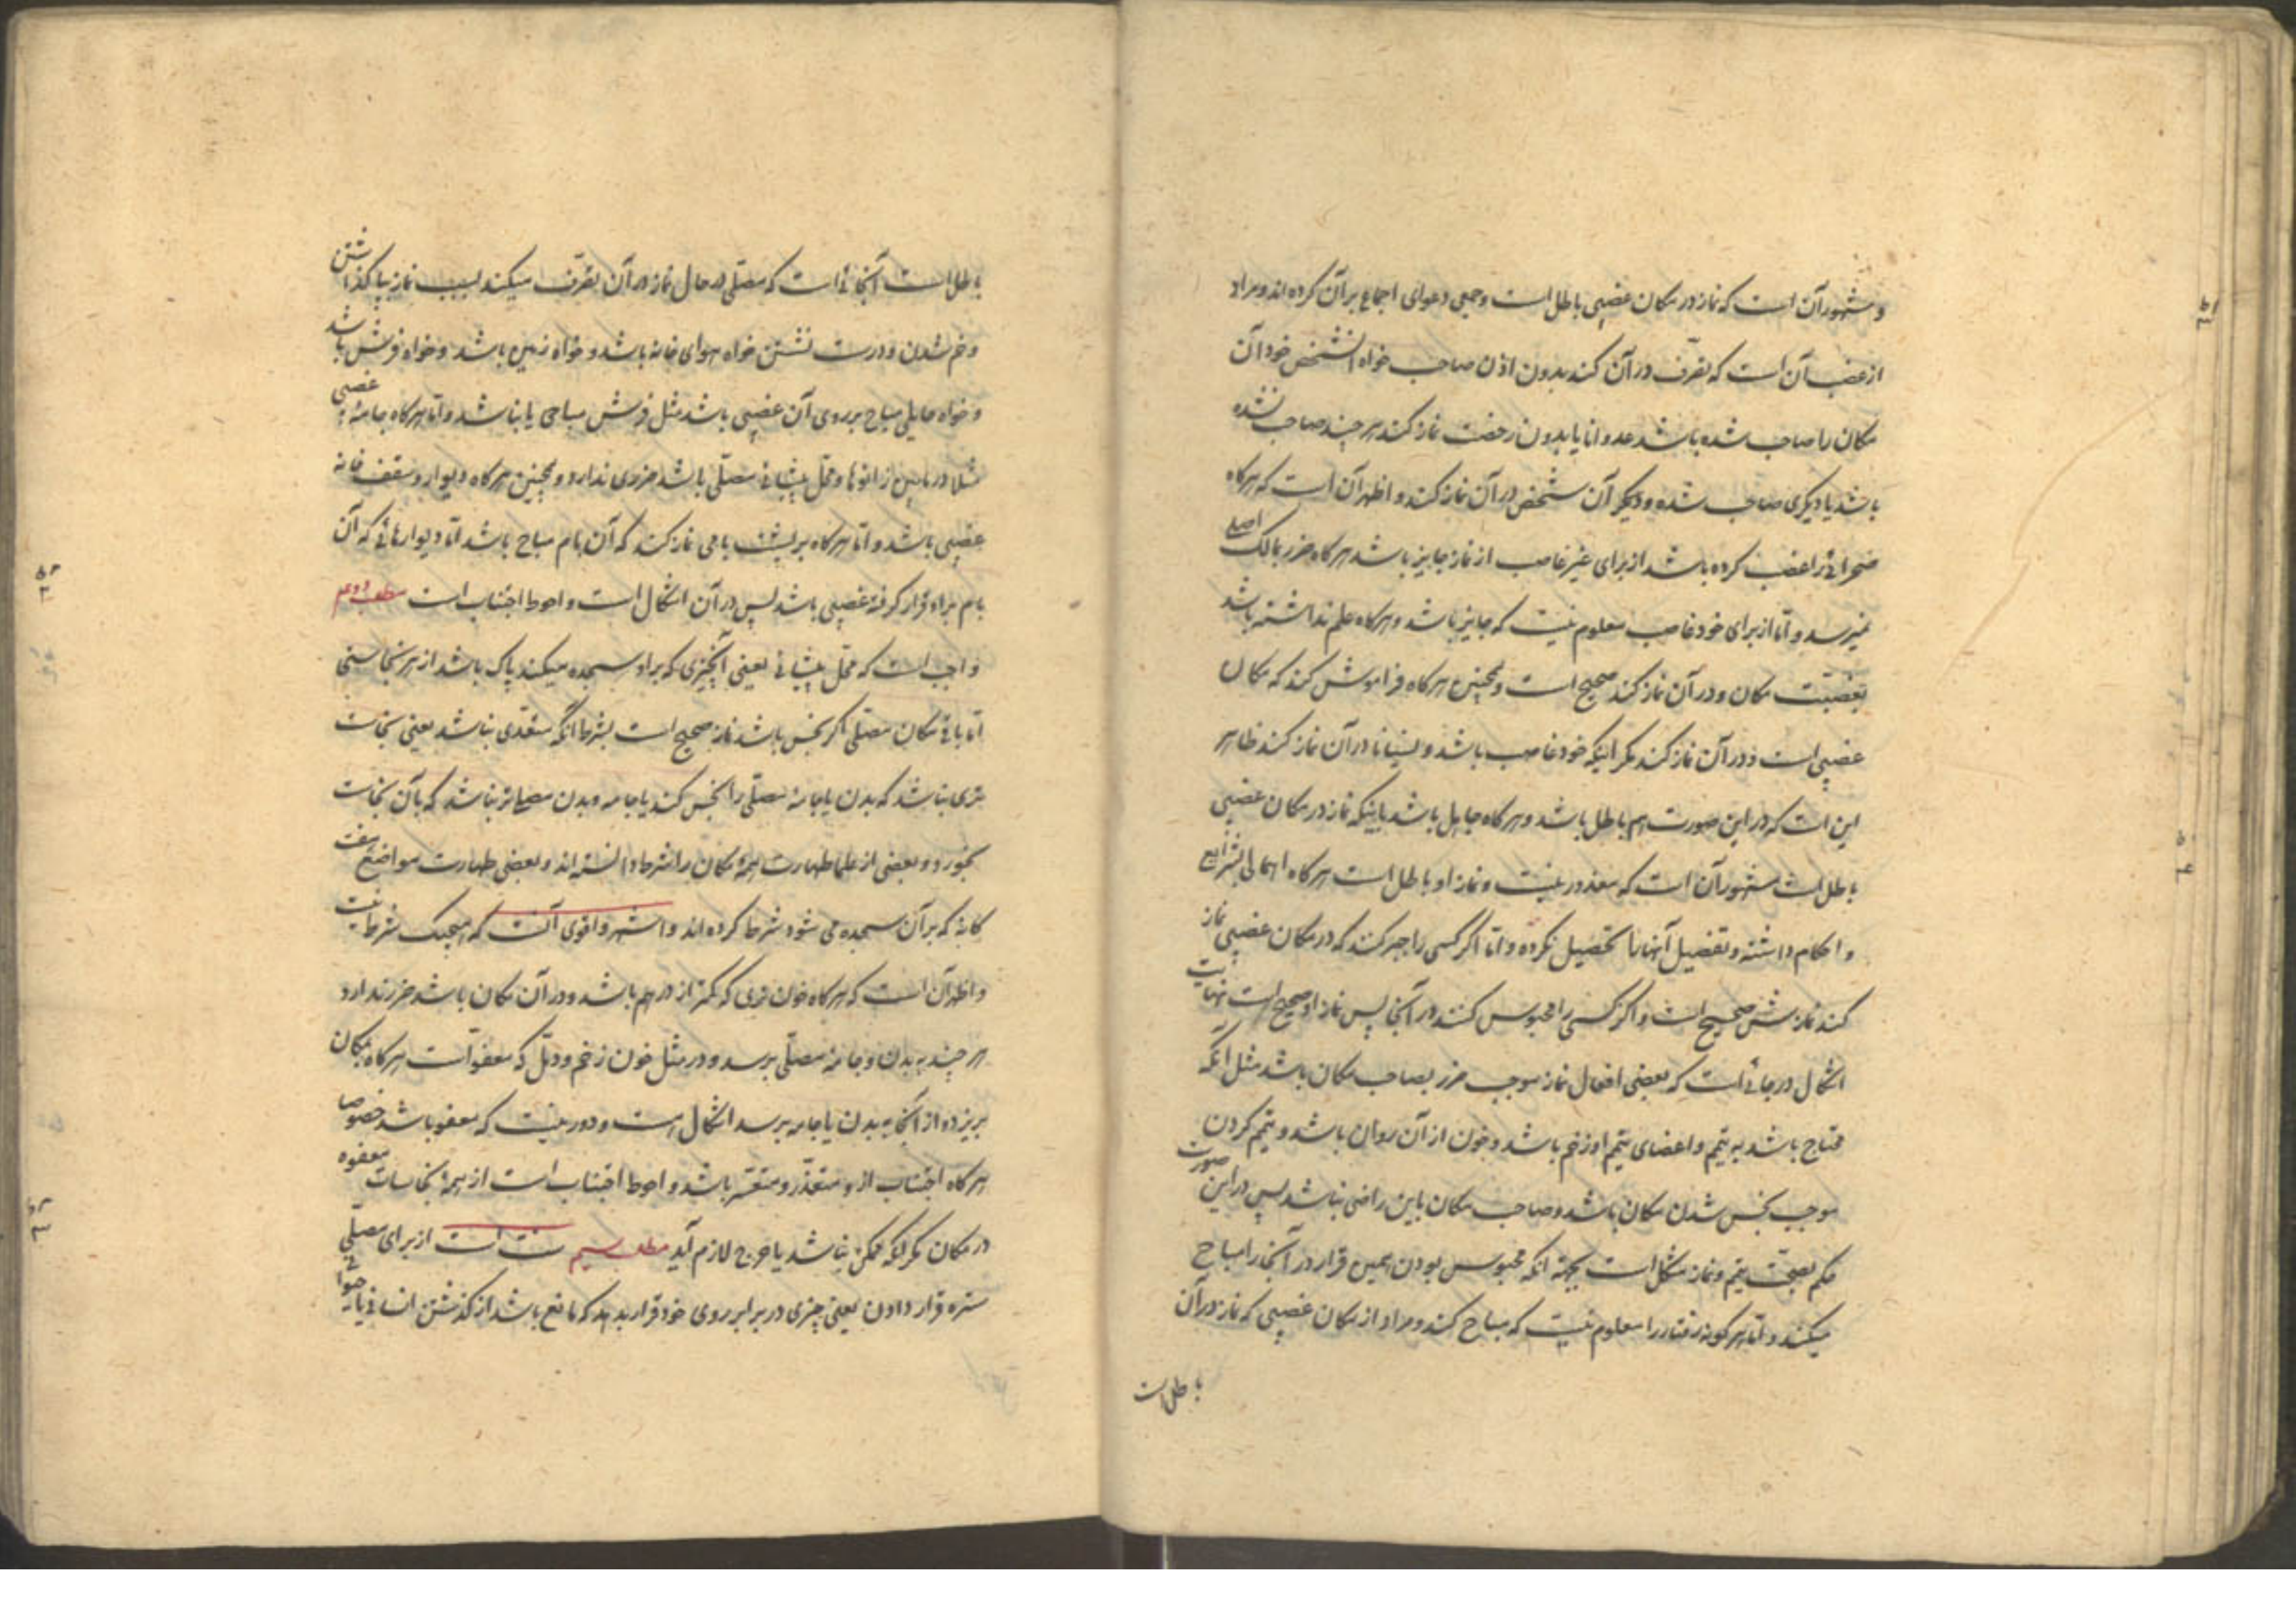 و مشهور آن است که نماز در مکان غصبی باطل است و جمعی دعوای اجماع بر آن کرده‌اند و مراد
از غصب آن است که تصرّف در آن کند بدون اذن صاحب خواه آنشخص خود آن
مکان را صاحب شده باشد عدوانا یا بدون رخصت نماز کند هر چند صاحب نشده
باشد یا دیگری صاحب شده و دیگر آن شخص در آن نماز کند و اظهر آن است که هرگاه
صحرائی را غصب کرده باشد از برای غیر غاصب از نماز جایز باشد هرگاه ضرر بمالک اصلی
نمیرسد و امّا از برای خود غاصب معلوم نیست که جایز باشد و هرگاه علم نداشته باشد
بغصبیّت مکان و در آن نماز کند صحیح است و همچنین هرگاه فراموش کند که مکان
غصبی است و در آن نماز کند مگر اینکه خود غاصب باشد و نسیانا در آن نماز کند ظاهر
این است که در این صورت هم باطل باشد و هرگاه جاهل باشد باینکه نماز در مکان غصبی
باطل است مشهور آن است که معذور نیست و نماز او باطل است هرگاه اجمالی بشرایع
و احکام داشته و تفصیل آنها را تحصیل نکرده و امّا اگر کسی را جبر کنند که در مکان غصبی نماز
کند نمازش صحیح است و اگر کسی را محبوس کنند در آنجا پس نماز او صحیح است نهایت
اشکال در جائی است که بعضی افعال نماز موجب ضرر بصاحب مکان باشد مثل آنکه
محتاج باشد به تیمّم و اعضای تیمّم او زخم باشد و خون از آن روان باشد و تیمّم کردن
موجب نجس شدن مکان باشد و صاحب مکان باین راضی نباشد پس در این صورت
حکم بصحّت تیمّم و نماز مشکل است بجهة آنکه محبوس بودن همین قرار در آنجا را مباح
میکند و امّا هر گونه رفتار را معلوم نیست که مباح کند و مراد از مکان غصبی که نماز در آن
باطل است
باطل است آنجائی است که مصلّی در حال نماز در آن تصرّف میکند بسبب نماز بپا گذاشتن
و خم شدن و درست نشستن خواه هوای خانه باشد و خواه زمین باشد و خواه فرش باشد
و خواه حایلی مباح بر روی آن غصبی باشد مثل فرش مباحی یا نباشد و امّا هرگاه جامهٔ غصبی
مثلا در مابین زانوها و محل پیشانی مصلّی باشد ضرری ندارد و همچنین هرگاه دیوار و سقف خانه
غصبی باشد و امّا هرگاه بر پشت بامی نماز کند که آن بام مباح باشد امّا دیوارهائی که آن
بام براه قرار گرفته غصبی باشد پس در آن اشکال است و احوط اجتناب است مطلب دویم
واجب است که محلّ پیشانی یعنی آنچیزی که براو سجده میکند پاک باشد از هر نجاستی
امّا باقی مکان مصلّی اگر نجس باشد نماز صحیح است بشرط آنکه متعدّی نباشد یعنی نجاست
تری نباشد که بدن یا جامهٔ مصلّی را نجس کند یا جامه و بدن مصلّی تر نباشد که بآن نجاست
بخورد و بعضی از علما طهارت همهٔ مکان را شرط دانسته‌اند و بعضی طهارت مواضع هفت
گانه که بر آن سجده می شود شرط کرده‌اند و اشهر و اقوی آنست که هیچیک شرط نیست
و اظهر آن است که هرگاه خون نری که کمتر از درهم باشد و در آن مکان باشد ضرر ندارد
هر چند به بدن و جامهٔ مصلّی برسد و در مثل خون زخم و دمّل که معفوّ است هرگاه بمکان
بریزد و از آنجا به بدن یا جامه برسد اشکال هست و دور نیست که معفو باشد خصوصا
هرگاه اجتناب از او متعذّر و متعسّر باشد و احوط اجتناب است از همهٔ نجاسات معفوه
در مکان مگر آنکه ممکن نباشد یا حرج لازم آید مطلب سیم سنّت است از برای مصلّی
ستره قرار دادن یعنی چیزی در برابر روی خود قرار بدهد که مانع باشد از گذشتن انسانی یا حیوانی